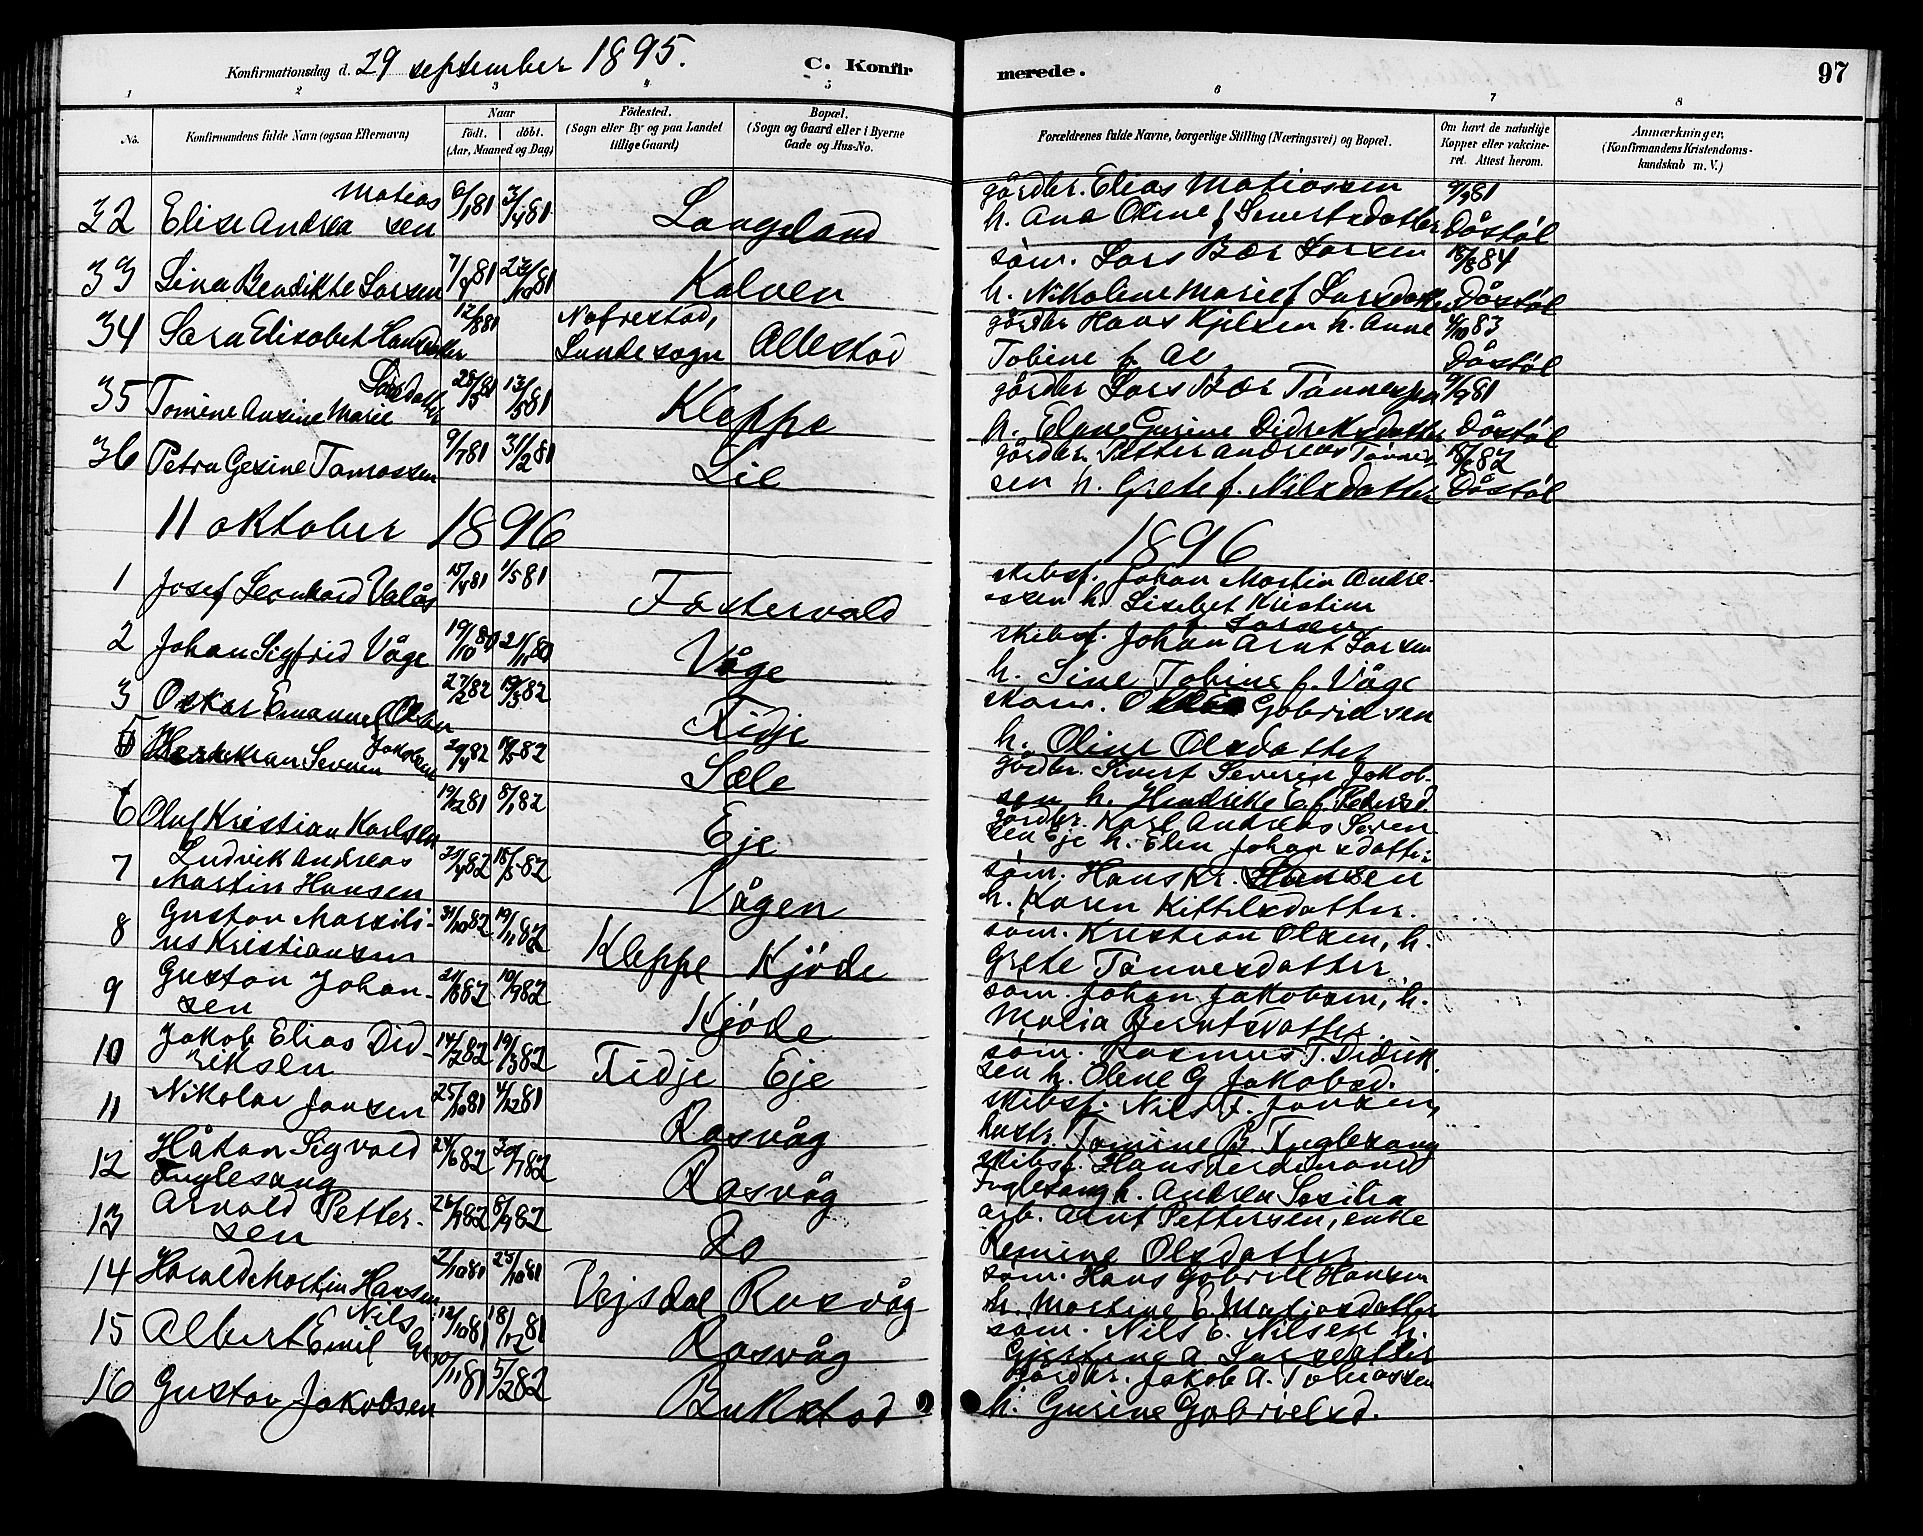 Konfirmationsdag d. 29 september 1895. C. Konfir merede. 97
1 2 3 4 5 6 7 8
No. Konfirmandens fulde Navn (ogsaa Efternavn) Naar Födt. döbt. (Aar, Maaned og Dag) Födested. (Sogn eller By og paa Landet tillige Gaard) Bopæl. (Sogn og Gaard eller i Byerne Gade og Hus-No. Forældrenes fulde Navne, borgerlige Stilling (Næringsvei) og Bopæl. Om havt de naturlige Kopper eller vakcineret. Attest herom. Anmærkninger, (Konfirmandens Kristendomskundskab m. V.)
32 Elise Andrea Matiassen 6/1 81 3/4 81 Langeland gårdbr. Elias Matiassen 9/9 81
h. Ana Oline f. Sivertsdatter Döstöl
33 Lina Bendikte Larsen 7/9 81 23/10 81 Kalven söm. Lars Bær Larsen 18/8 84
h. Nikoline Marie f. Larsdatter Döstöl
34 Sara Elisabet Hansdatter 12/8 81 Nafrestad, Lundesogn Allestad gårdbr Hans Kjelsen h. Anne 4/10 83
Tobine f. Al Döstöl
35 Tomine Ansine Marie Larsdatter 28/3 81 13/5 81 Kleppe gårdbr Lars Bær Tönnessen 9/9 81
h. Elene Gurine Didreksdatter Döstöl
36 Petra Gesine Tomassen 9/7 81 31/2 81 Lie gårdbr. Petter Andreas Tönnes- 18/8 82
sen h. Grete f. Nilsdatter Döstöl
11 oktober 1896 1896
1 Josef Leonhard Valås 15/4 81 1/5 81 Fastervold skibsf. Johan Martin Andre-
assen h. Liselbet Kristine
f. Larsen
2 Johan Sigfrid Våge 19/10 80 21/11 80 Våge skibsf. Johan Arnt Larsen
h. Sine Tobine f. Våge
3 Oskar Emanuel Olsen 27/2 82 19/3 82 Tidje Gabrielsen
h. Oline Olsdatter
5 Severin Jakobsen 29/4 82 18/5 82 Sæle gårdbr. Sivert Severin Jakob-
sen h. Hendrikke E. f. Pedersd
6 Oluf Kristian Karlsen 19/12 81 8/1 82 Eje gårdbr. Karl Andreas Sören
sen Eje h. Elen Johansdatter
7 Ludvik Andreas Martin Hansen 30/4 82 18/5 82 Vågen söm. Hans Kr. Hansen
h. Karen Kittelsdatter.
8 Gustav Marsilius Kristiansen 31/10 82 19/11 82 Kleppe Kjöde söm. Kristian Olsen, h.
Grete Tönnesdatter
9 Gustav Johansen 21/8 82 10/9 82 Kjöde söm. Johan Jakobsen, h.
Malia Berntsdatter
10 Jakob Elias Didriksen 14/2 82 19/3 82 Tidje Eje söm. Rasmus T. Didrik
sen h. Olene G Jakobsd.
11 Nikolai Jansen 25/10 81 4/12 81 Rasvåg skibsf. Nils F. Jansen,
hustr. Tomine B. Fuglesang
12 Håkon Sigvald Fuglesang 24/6 82 30/7 82 Rasvåg skibsf. Hans Ferdinand
Fuglesang h. Andrea Sesilia
13 Arnold Pettersen 26/7 82 8/9 82 Do arb. Arnt Pettersen, enke
Remine Olsdatter
14 Harald Martin Hansen 2/10 81 23/10 81 Vejsdal Rasvåg söm. Hans Gabriel Hansen
h. Martine E. Matiasdatter
15 Albert Emil Nilsen 12/10 81 18/12 81 Rasvåg söm. Nils E. Nilsen h.
Gjertine A. Larsdatter
16 Gustav Jakobsen 10/11 81 5/2 82 Bukstad Gårdbr. Jakob A. Tobiassen
h. Gurine Gabrielsd.